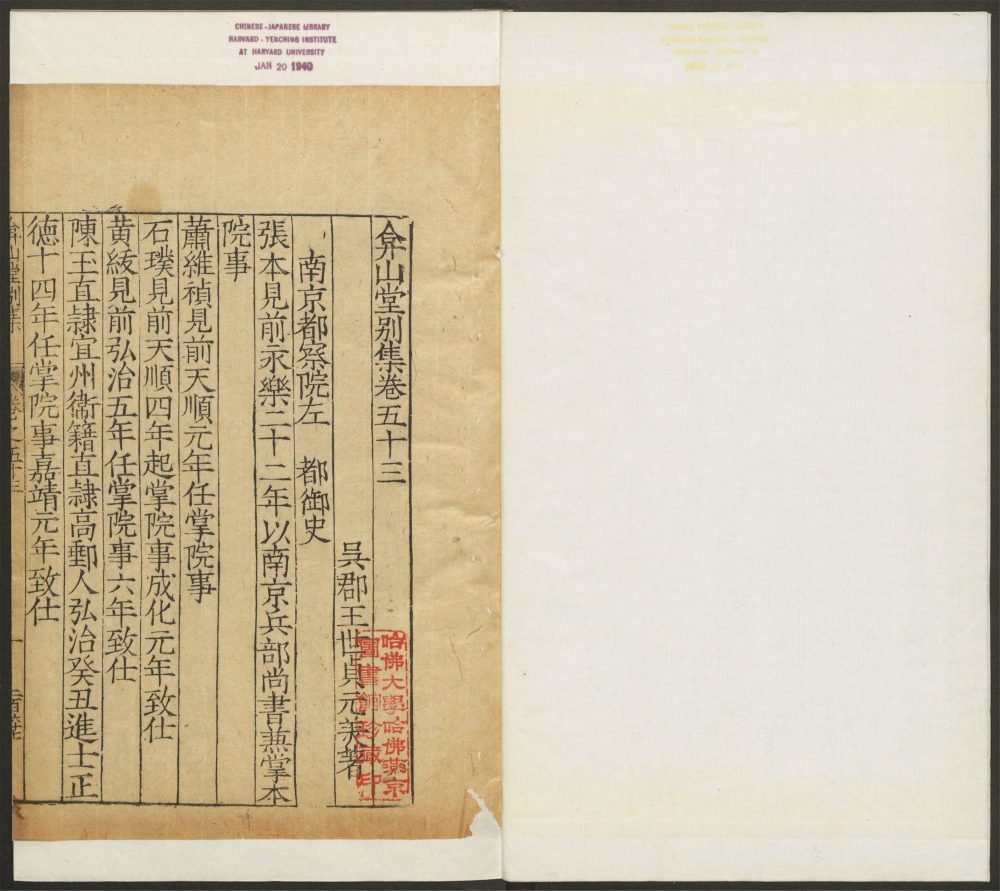 CHINESE-JAPANESE LIBRARY
HARVARD-YENCHING INSTITUTE
AT HARVARD UNIVERSITY
JAN 20 1940
弇山堂别集卷五十三
吳郡王世貞元美著
南京都察院左 都御史
張本見前永樂二十二年以南京兵部尚書兼掌本
院事
蕭維禎見前天順元年任掌院事
石璞見前天順四年起掌院事成化元年致仕
黄紱見前弘治五年任掌院事六年致仕
陳玉直隷宜州衞籍直隷高郵人弘治癸丑進士正
德十四年任掌院事嘉靖元年致仕
弇山堂别集 卷之五十三 一
哈佛大學哈佛燕京
圖書館珍藏印